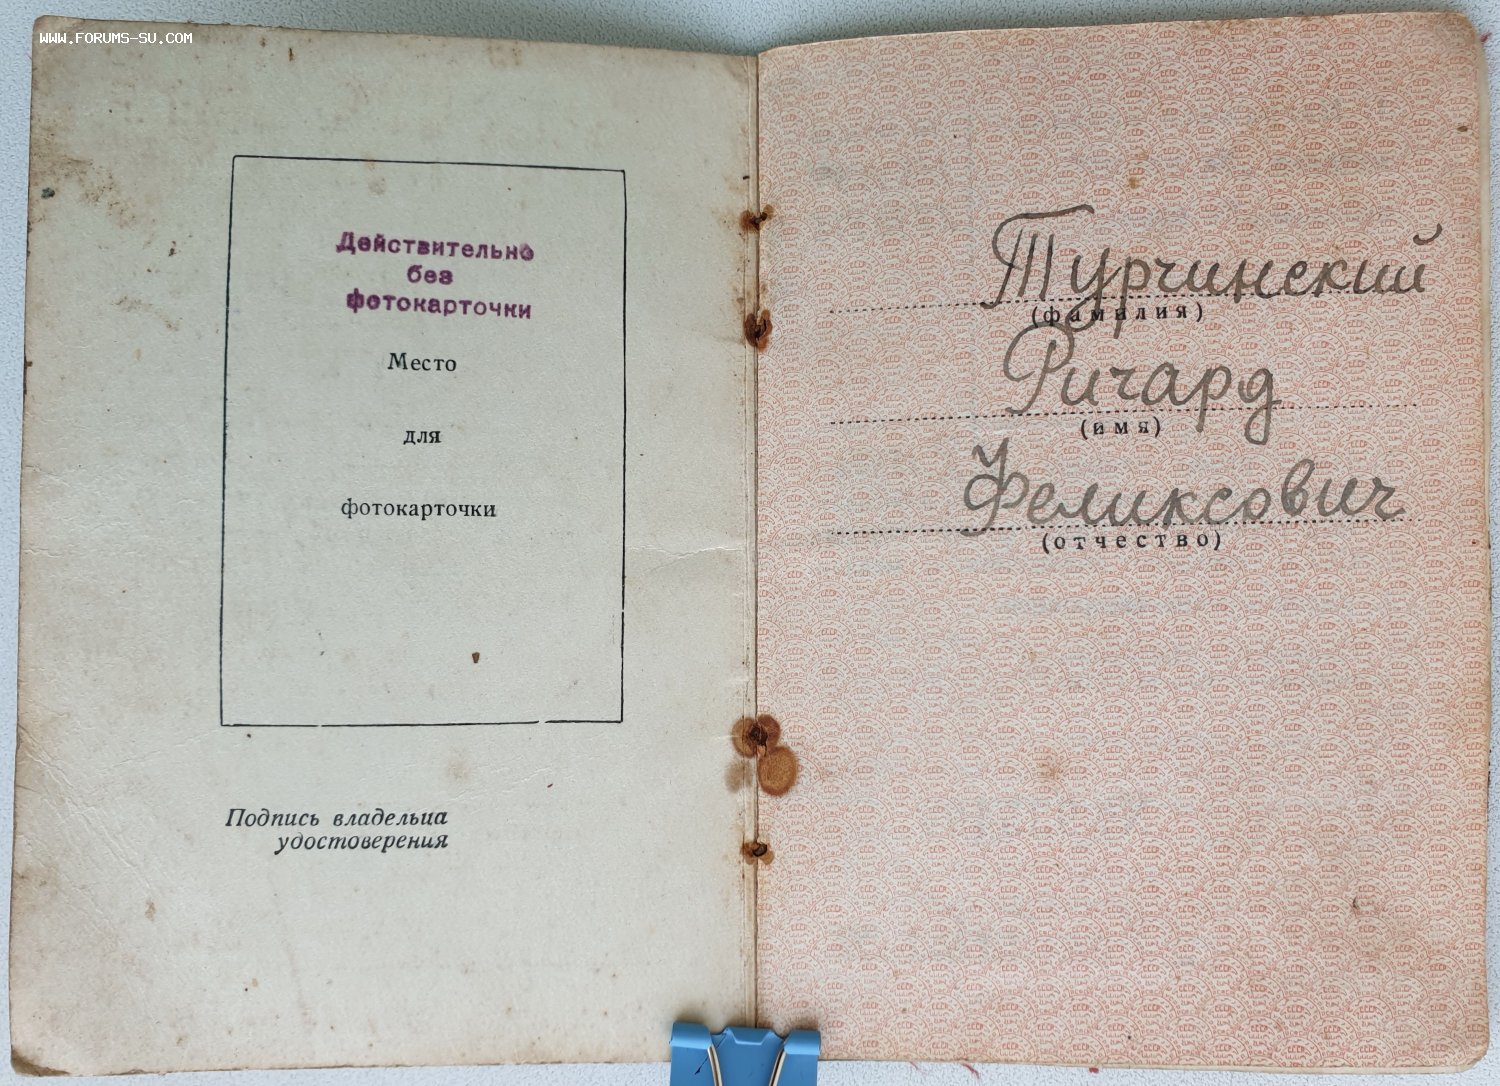 WWW.FORUMS-SU.COM
Действительно
без
фотокарточки
Место
для
фотокарточки
Подпись владельца
удостоверения
Турчинский
(фамилия)
Ричард
(имя)
Феликсович
(отчество)